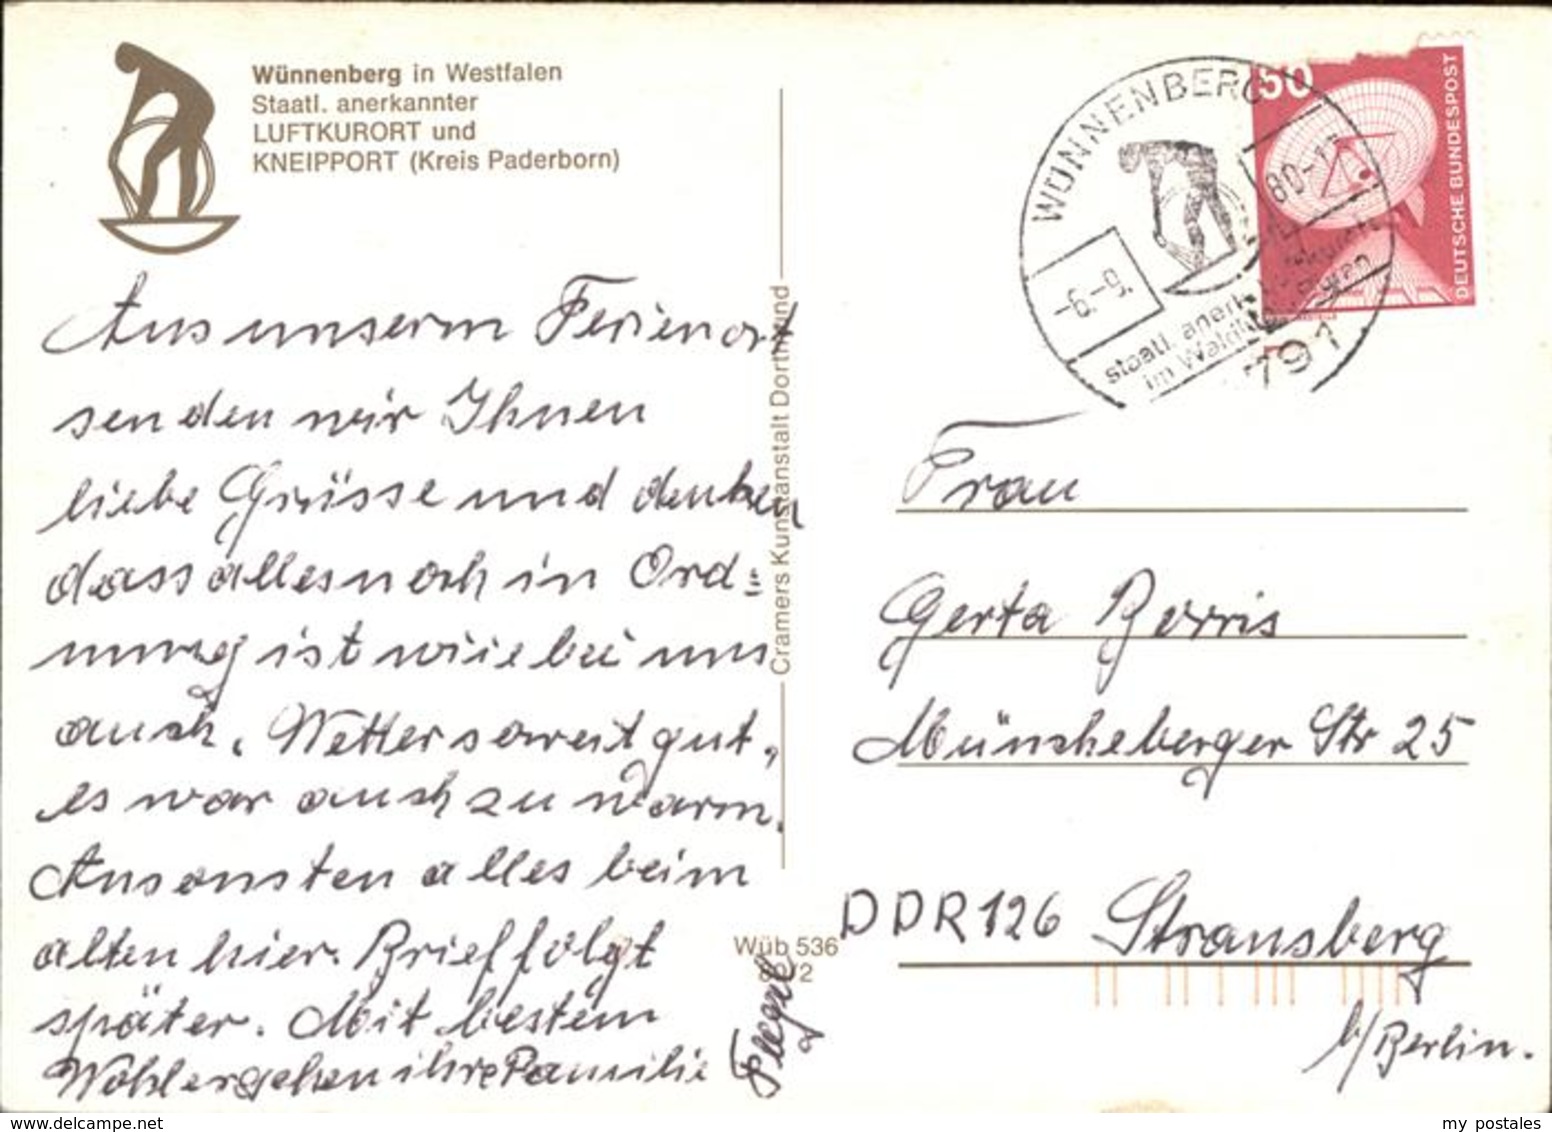 Wünnenberg in Westfalen
Staatl. anerkannter
LUFTKURORT und
KNEIPPORT (Kreis Paderborn)
Aus unserm Ferienort
senden wir Ihnen
liebe Grüsse und denken
dass alles noch in Ord=
nung ist wie bei uns
auch. Wetter soweit gut,
es war auch zu warm.
Ansonsten alles beim
alten hier. Brief folgt
später. Mit bestem
Wohlergehen ihre Familie
Cramers Kunstanstalt Dortmund
Wüb 536
WÜNNENBERG
-6.-9.
80-17
staatl. anerk.
im Waldi
791
50
DEUTSCHE BUNDESPOST
Frau
Gerta Borris
Müncheberger Str 25
DDR 126 Strausberg
b/Berlin.
my postales